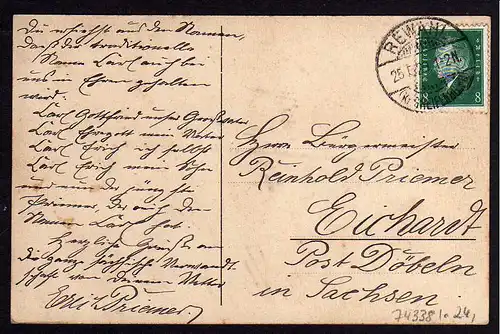 Du ersiehst aus den Namen,
daß der traditionelle
Name Carl auch bei
uns in Ehren gehalten
wird.
Carl Gotthard unser Großvater
Carl Ehregott mein Vater
Carl Erich ich selbst
Carl Erich mein Sohn
und nun der jüngste
Priemer, der auch den
Namen Carl hat.
Herzliche Grüße an
die ganze sächsische Verwandt-
schaft von deinem Vetter
Erich Priemer.
REWAHL
25
8 8
Herrn Bürgermeister
Reinhold Priemer
Eichardt
Post Döbeln
in Sachsen.
74338